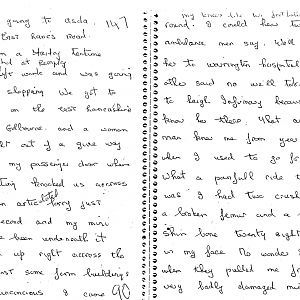 going to asda, 147
East Lancs Road.
on a Hartley Teatime
left work and was going
shopping We got to
on the east lancashire
Golborne. and a woman
out of a give way
my passenger door when
knocked us accross
an artic lorry just
second and my mini
been underneath it
up right accross the
some farm buildings
unconcious I came 90
round. I could hear two
ambulance men say. Well
he to warrington hospital
other said no well take
to leigh Infirmary because
know her there. What a
man knew me from years
when I used to go for
what a painfull ride
was I had two crushed
a broken femur and a
Shin bone twenty eight
in my face. No wonder
when they pulled me from
very badly damaged m